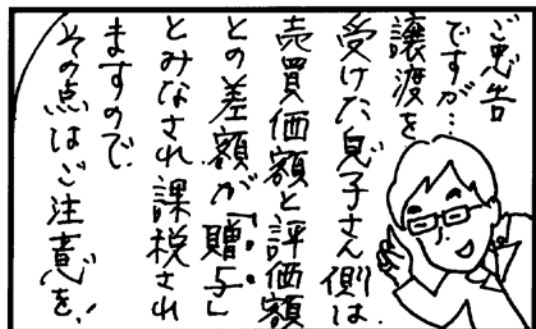 ご忠告
ですが…
譲渡を
受けた息子さん側は
売買価額と評価額
との差額が「贈与」
とみなされ課税され
ますので
その点はご注意を!